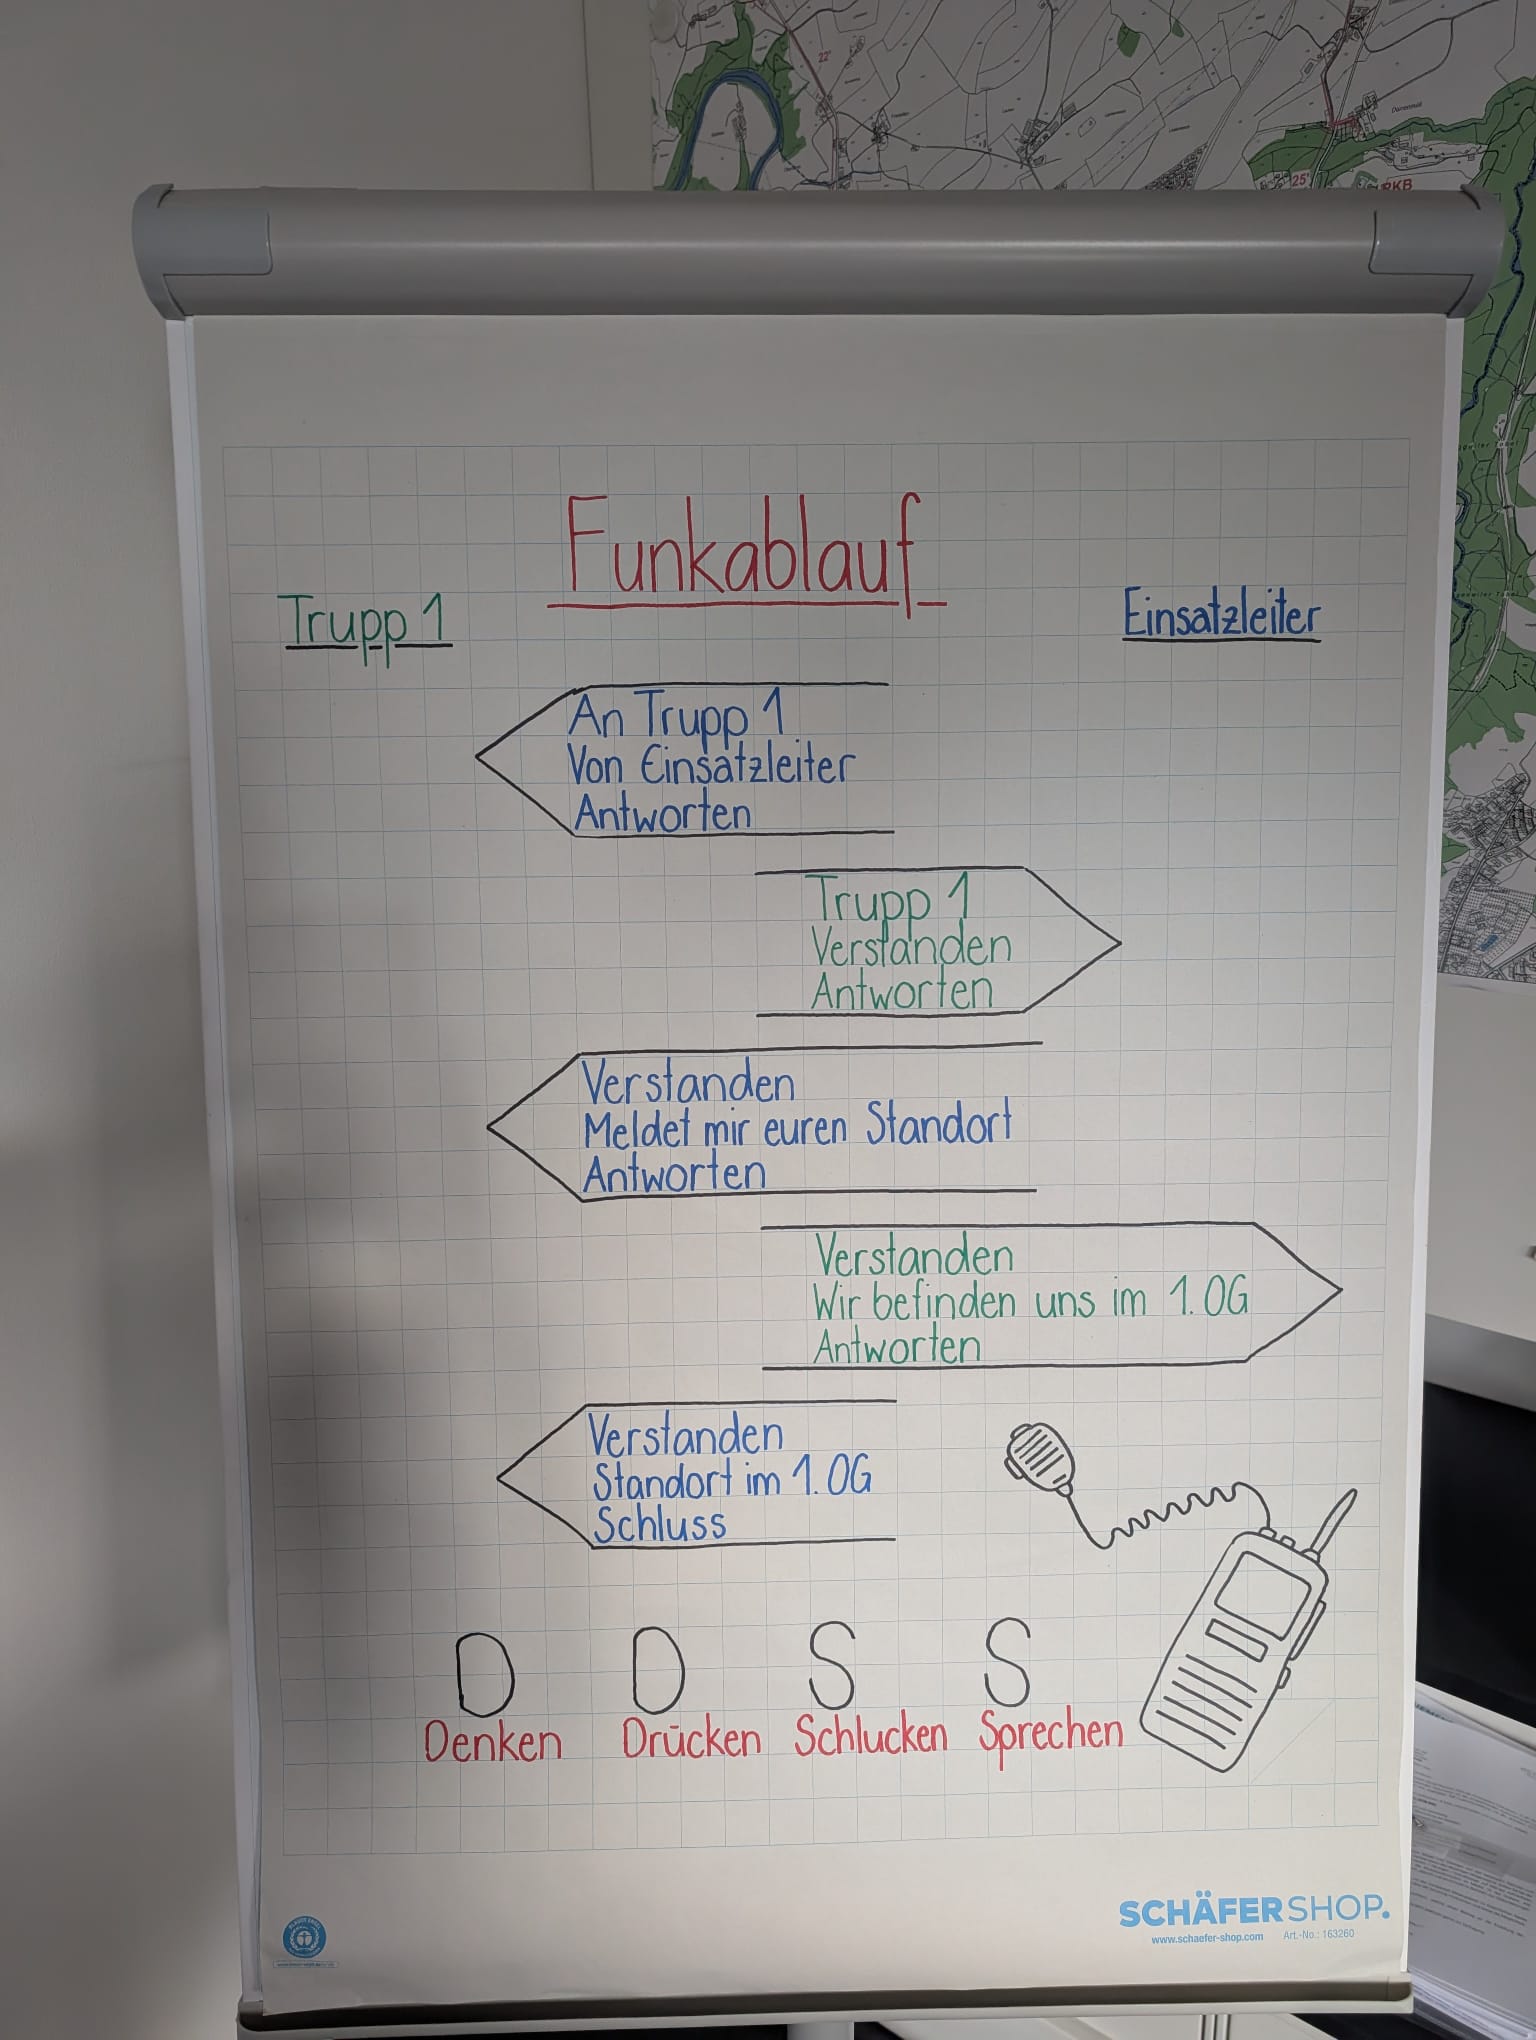 22'
25'
RKB
Funkablauf
Trupp 1
Einsatzleiter
An Trupp 1
Von Einsatzleiter
Antworten
Trupp 1
Verstanden
Antworten
Verstanden
Meldet mir euren Standort
Antworten
Verstanden
Wir befinden uns im 1.OG
Antworten
Verstanden
Standort im 1.OG
Schluss
D D S S
Denken Drücken Schlucken Sprechen
SCHÄFER SHOP.
www.schaefer-shop.com Art.-No.: 163260